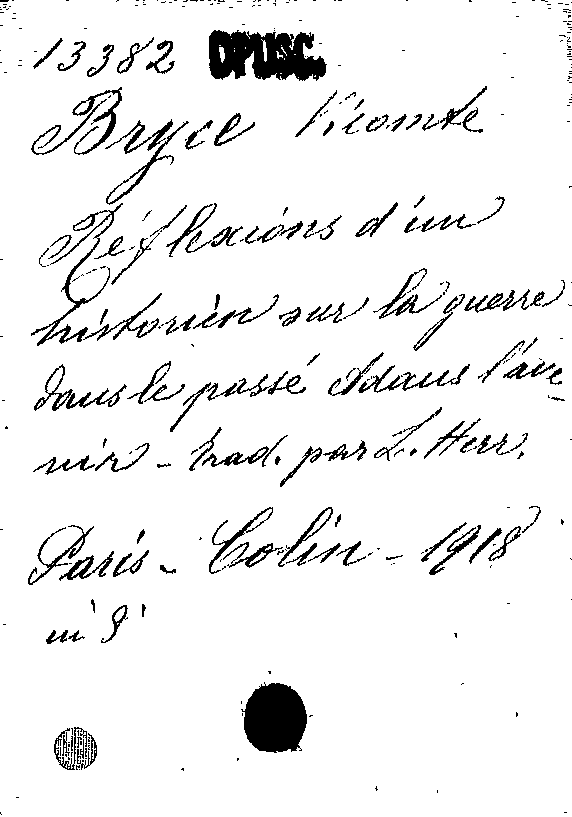 13382 OPUSC.
Bryce Vicomte
Réflexions d'un
historien sur la guerre
dans le passé et dans l'ave-
nir - trad. par L. Herr.
Paris - Colin - 1918
in 8°